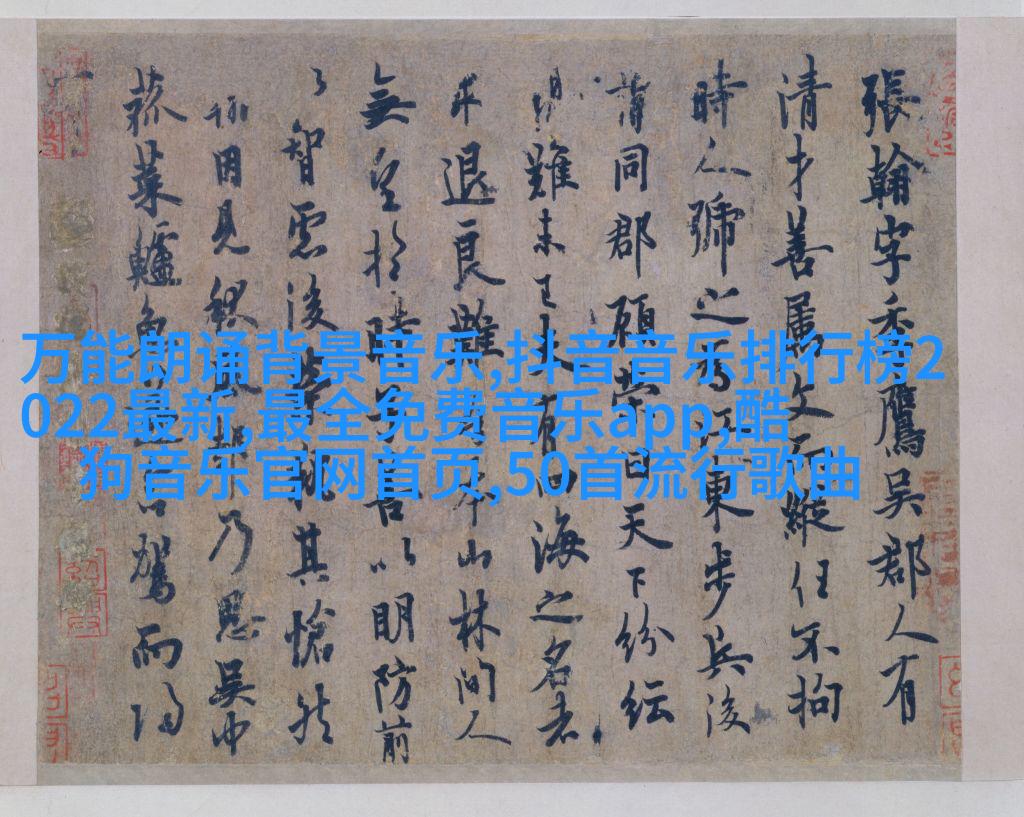 万能朗诵背景音乐,抖音音乐排行榜2
022最新,最全免费音乐app,酷
狗音乐官网首页,50首流行歌曲
張翰字季鷹吳郡人有
清才善屬文而縱任不拘
時人號之為江東步兵後
同郡顧榮曰天下紛紜
難未已夫有四海之名者
求退良難吾本山林間人
無望於時子善以明防前
以智慮後榮執其愴然
翰因見秋風起乃思吳中
菰菜鱸魚駕而歸